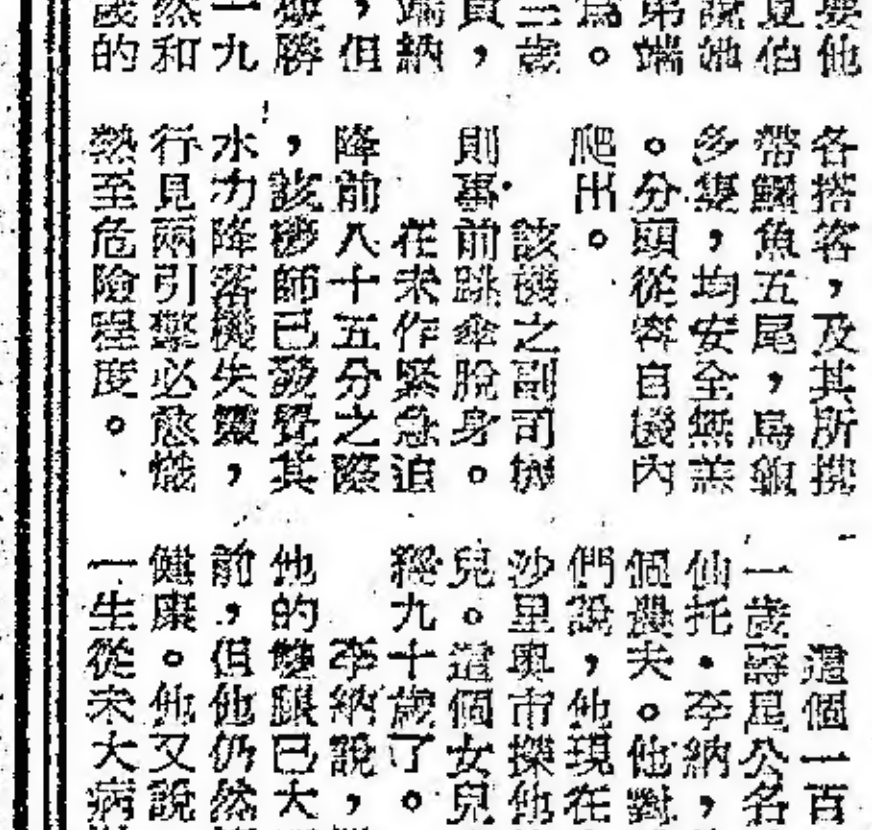 要他
見伯
說她
弟端
為。
三歲
員，
端納
，但
獲勝
一九
然和
歲的
各搭客，及其所携
帶鱷魚五尾，烏龜
多隻，均安全無恙
。分頭從容自機內
爬出。
該機之副司機
則事前跳傘脫身。
在未作緊急迫
降前八十五分之際
，該師已發覺其
水力降落機失靈，
行見兩引擎必愈熾
熱至危險程度。
這個一百
一歲壽星公名
仙托·李納，
個農夫。他對
們說，他現在
沙里奧市探他
兒。這個女兒
經九十歲了。
李納說，
他的雙眼已大
前，但他仍然
健康。他又說
一生從未大病